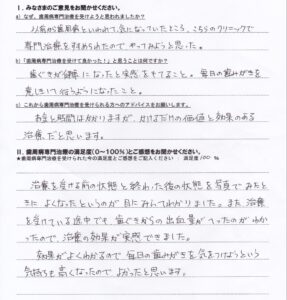 Ⅰ．みなさまのご意見をお聞かせください。
a) なぜ、歯周病専門治療を受けようと思われましたか？
以前から歯周病といわれて、気になっていたところ、こちらのクリニックで
専門治療をすすめられたので、やってみようと思った。
b)「歯周病専門治療を受けて良かった！」と思うことは何ですか？
歯ぐきが健康になったと実感をもてること。毎日の歯みがきを
意識して行うようになったこと。
c) これから歯周病専門治療を受けられる方へのアドバイスをお願いします。
お金と時間はかかりますが、かけるだけの価値と効果のある
治療だと思います。
Ⅱ．歯周病専門治療の満足度（0～100%）とご感想をお聞かせください。
★歯周病専門治療を受けられた今の満足度とご感想をご記入ください 満足度 100 %
治療を受ける前の状態と終わった後の状態を写真でみたと
きに よくなったというのが目にみえてわかりました。また、治療
を受けている途中でも 歯ぐきからの出血量がへったのがわか
ったので、治療の効果が実感できました。
効果がよくわかるので 毎日の歯みがきを気をつけようという
気持ちも高くなったので よかったと思います。